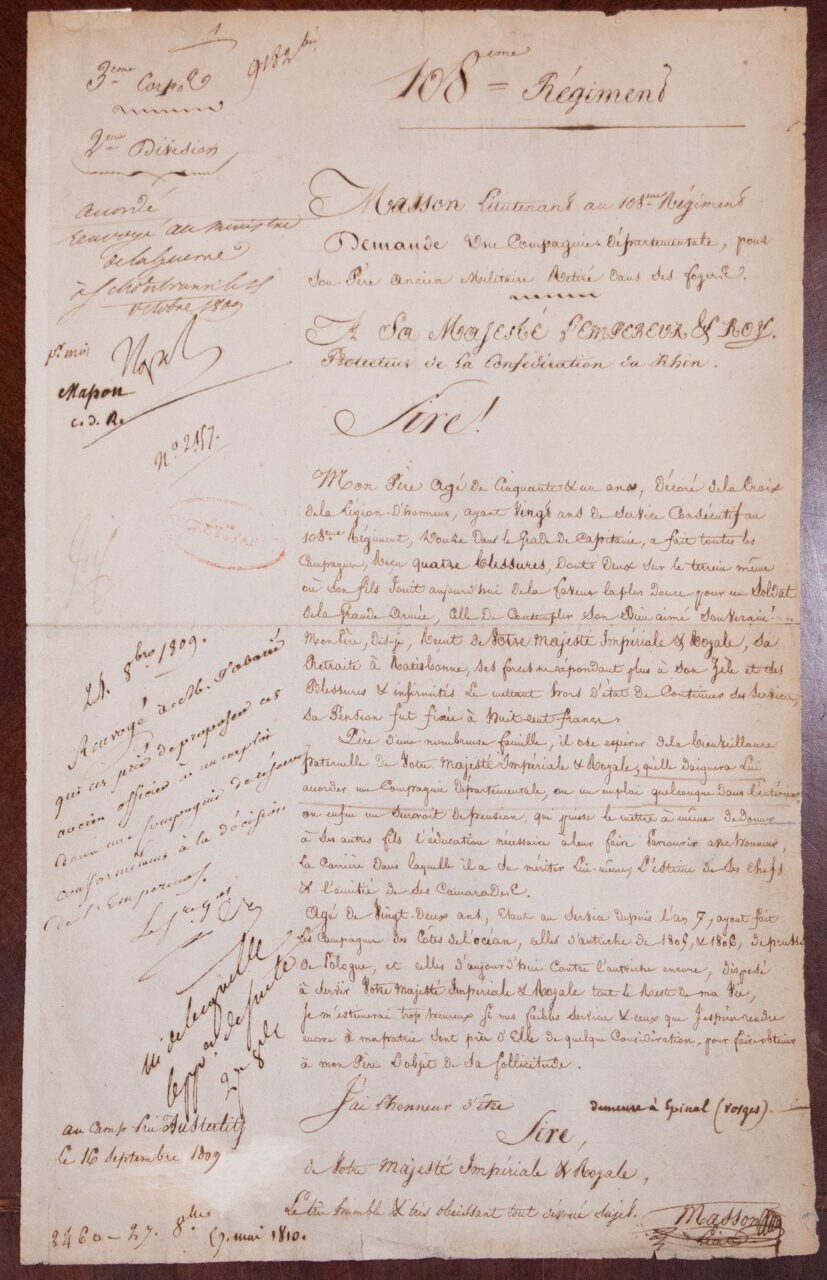 3ème Corps
9182 bis
108ème = Régiment
2ème Division
accordé
renvoyé au ministre
de la Guerre
à Schönbrunn le
octobre 1809
Nap
Masson
c. d. R.
N° 2157.
Masson Lieutenant au 108ème Régiment
Demande une Compagnie départementale, pour
son Père ancien Militaire Retiré dans ses foyers.
A Sa Majesté l'Empereur & Roy,
Protecteur de la Confédération du Rhin.
Sire!
Mon Père agé de Cinquante & un ans, Décoré de la Croix
de la Légion-d'honneur, ayant vingt ans de service Consécutif au
108ème Régiment, Douze dans le grade de Capitaine, a fait toutes les
Campagnes, Reçu quatre blessures, dont deux sur le terrein même
où son fils Jouit aujourd'hui de la faveur la plus douce pour un Soldat
de la Grande Armée, celle de Contempler Son Bien aimé Souverain!
Mon Père, dis-je, Recut de Votre Majesté Impériale & Royale, sa
Retraite à Ratisbonne, ses forces ne répondant plus à son Zèle et ses
Blessures & infirmités le mettant hors d'état de Continuer ses Services,
sa Pension fut fixée à huit cent francs.
Père d'une nombreuse famille, il ose espérer de la bienveillance
paternelle de Votre Majesté Impériale & Royale, qu'elle daignera lui
accorder une Compagnie départementale, ou un emploi quelconque dans l'intérieur,
ou enfin un Surcroit de pension, qui puisse le mettre à même de donner
à ses autres fils l'éducation nécessaire a leur faire Parcourir avec honneur,
la Carrière dans laquelle il a su mériter lui-même, l'estime de ses chefs
& l'amitié de ses Camarades.
Agé de Vingt-Deux ans, Etant au Service depuis l'an 7, ayant fait
les Campagnes des Côtes de l'océan, celles d'autriche de 1805, & 1806, de prusse
de Pologne, et celles d'aujourd'hui Contre l'autriche encore, disposé
à servir Votre Majesté Impériale & Royale tout le Reste de ma Vie,
je m'estimerai trop heureux si mes faibles services & ceux que j'espère rendre
encore à ma patrie sont près d'Elle de quelque Considération, pour faire obtenir
à mon Père l'objet de sa sollicitude.
J'ai l'honneur d'être
demeure à Epinal (Vosges).
Sire,
de Votre Majesté Impériale & Royale,
Le très humble & très obéissant tout dévoué sujet.
Masson
24. 8bre 1809.
Renvoyé à M.
qui est prié de proposer cet
ancien officier à un emploi
dans une compagnie de réserve
conformément à la décision
de l'Empereur.
27 8bre
au Camp Austerlitz
le 16 septembre 1809
2460 - 27. 8bre
9. mai 1810.